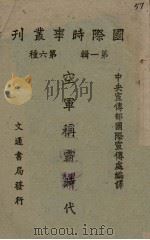 57
國際時事叢刊
第一輯 第六種
中央宣傳部國際宣傳處編譯
空軍稱霸時代
文通書局發行